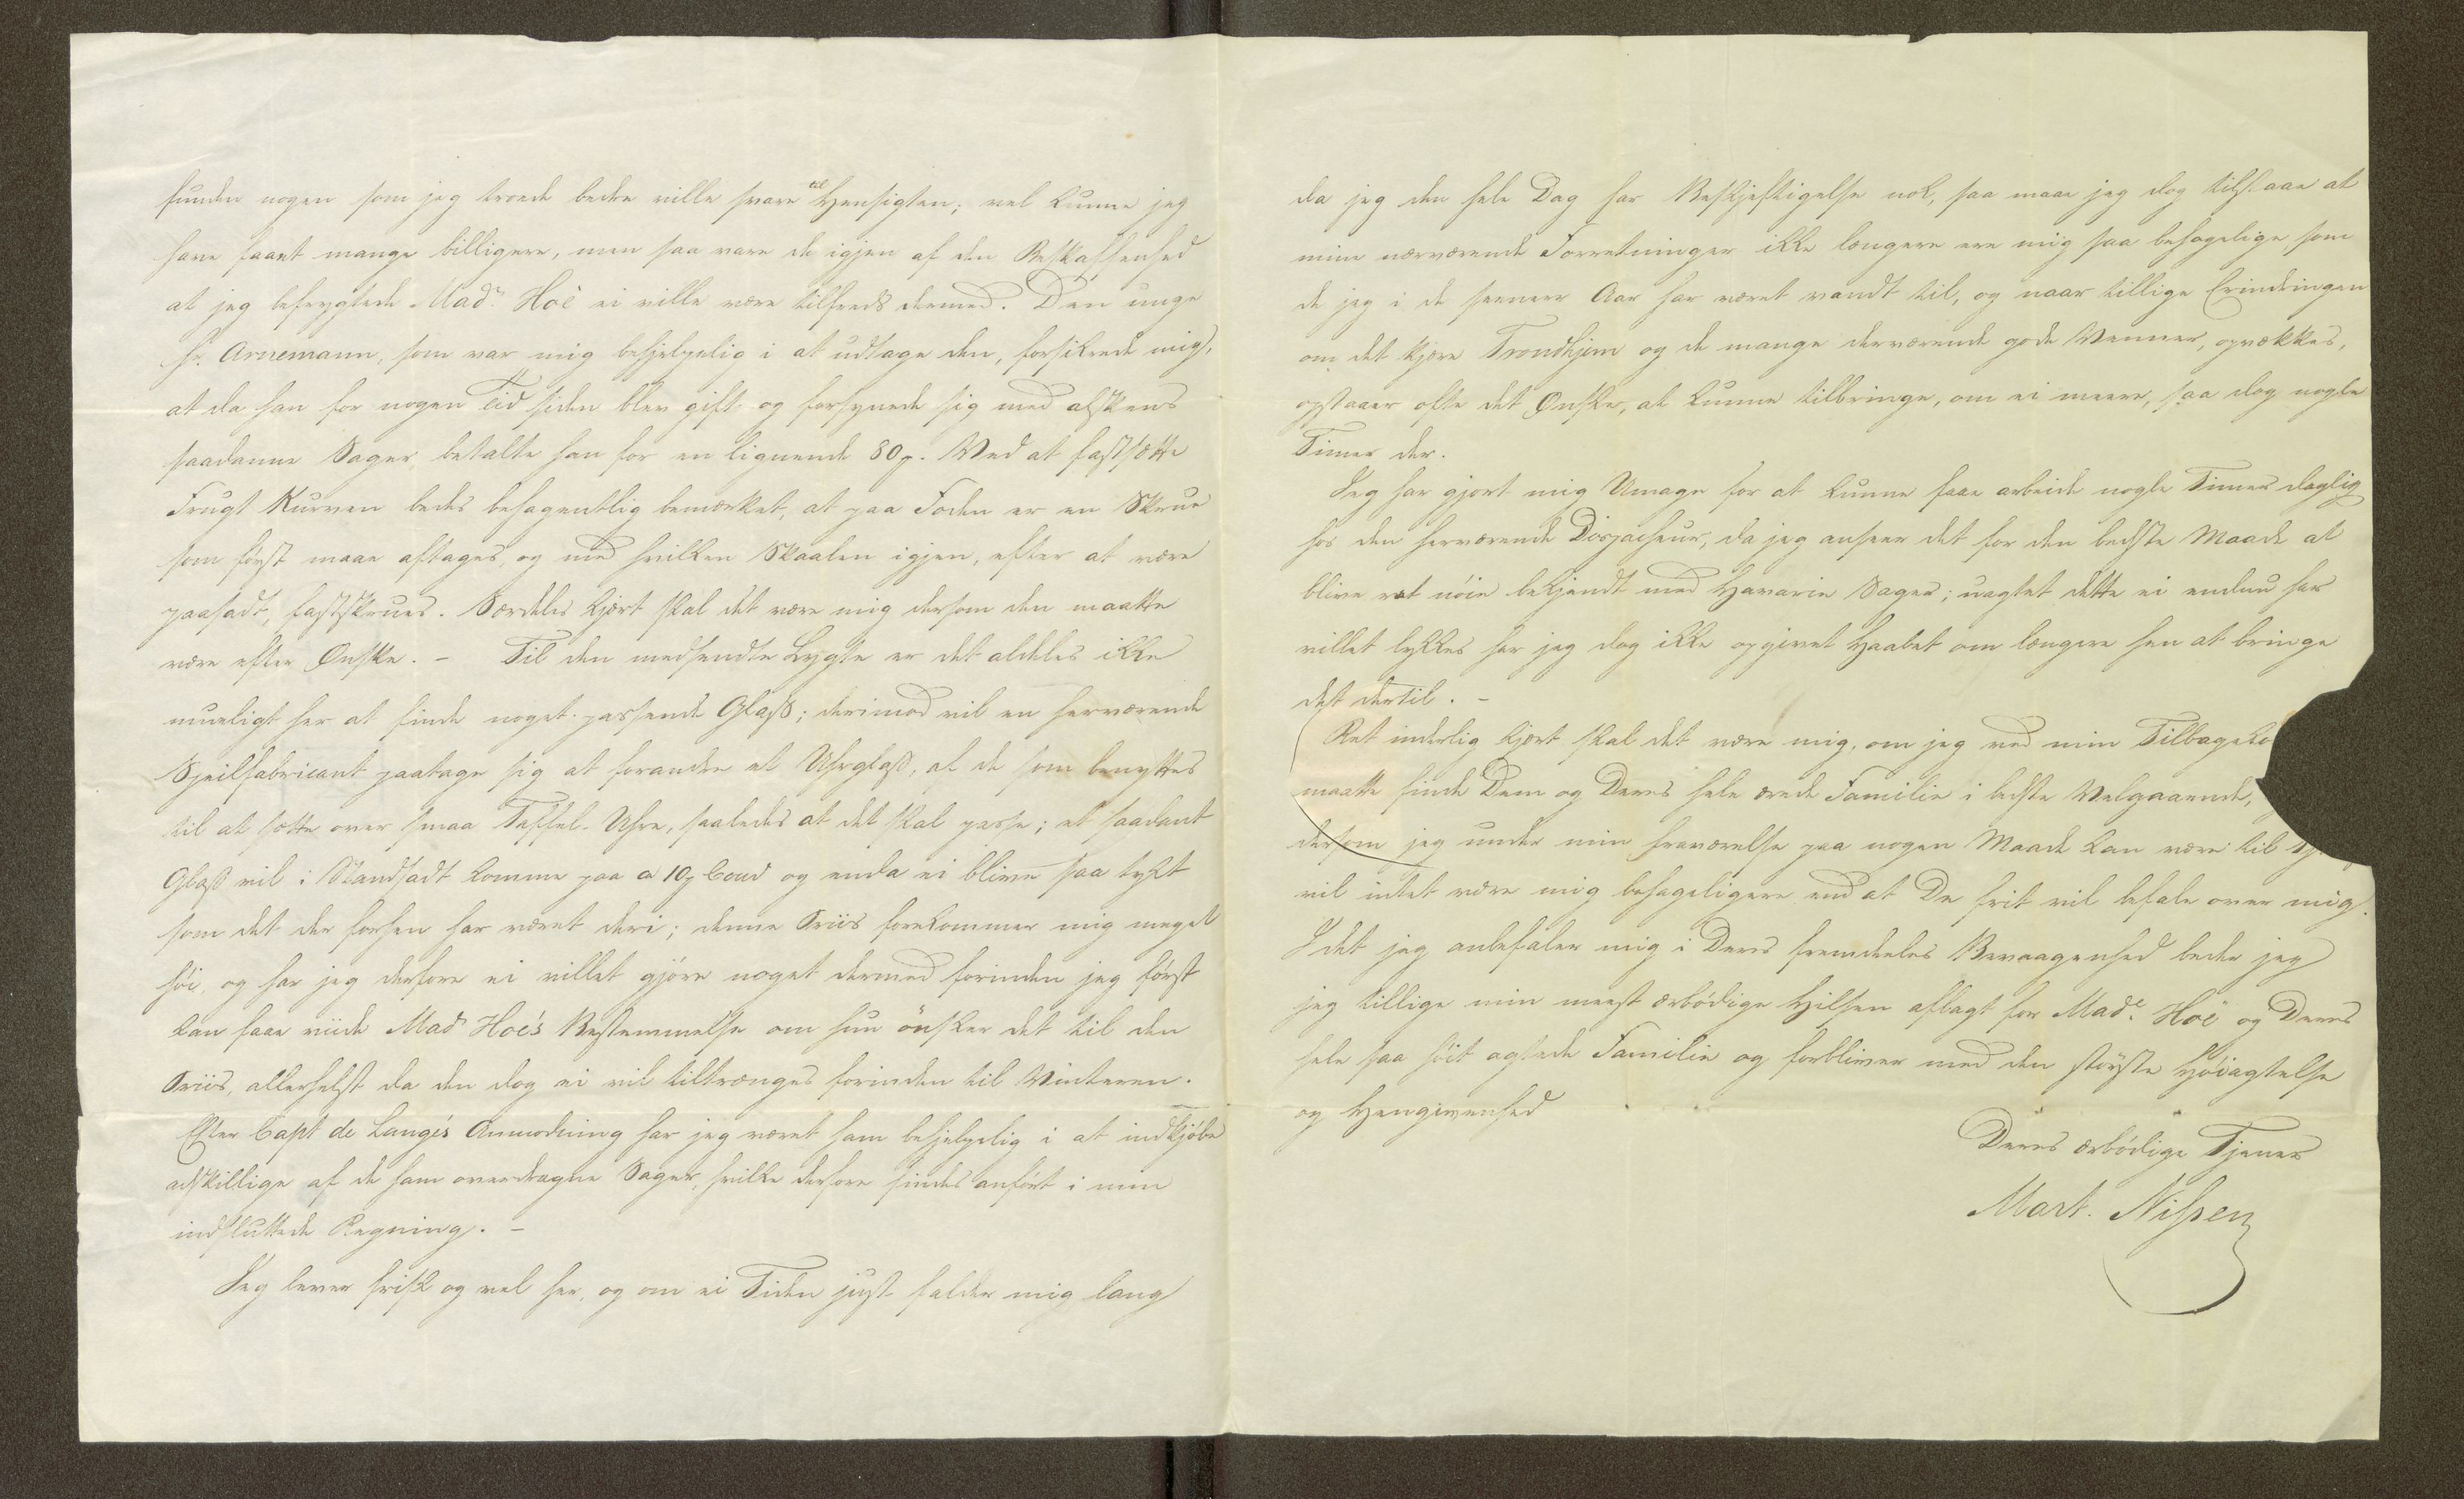 funden nogen som jeg troede bedre ville svare til Hensigten; vel kunne jeg
have faaet mange billigere, men saa vare de igjen af den Beskaffenhed
at jeg befrygtede Madᵉ Hoë ei ville være tilfreds dermed. Den unge
Hr. Arnemann, som var mig behjelpelig i at udtage den, forsikrede mig,
at da han for nogen Tid siden blev gift og forsynede sig med alskens
saadanne Sager, betalte han for en lignende 80 . Ved at fastsætte
Frugt Kurven bedes behagentlig bemærket, at paa Foden er en Skrue
som først maae aftages, og med hvilken Skaalen igjen, efter at være
paasadt, fastskrues. Særdeles kjært skal det være mig dersom den maatte
være efter Ønske. – Til den medsendte Lygte er det aldeles ikke
mueligt her at finde noget passende Glass; derimod vil en herværende
Speilfabricant paatage sig at forandre et Uhrglass, af de som benyttes
til at sætte over smaa Taffel-Uhre, saaledes at det skal passe; et saadant
Glass vil i Standsadt komme paa a 10 Cour og enda ei blive saa tykt
som det der forhen har været deri; denne Priis forekommer mig meget
høi, og har jeg derfore ei villet gjöre noget dermed forinden jeg först
kan faae viide Madᵉ Hoë's Bestemmelse om hun önsker det til den
Priis, allerhelst da den dog ei vil tiltrænges forinden til Vinteren.
Efter Capt de Lange's Anmodning har jeg været ham behjelpelig i at indkjöbe
adskillige af de ham overdragne Sager, hvilke derfore findes anfört i min
indsluttede Regning. –
Jeg lever frisk og vel her, og om ei Tiden just falder mig lang
da jeg den hele Dag har Beskjeftigelse nok, saa maae jeg dog tilstaae at
mine nærværende Forretninger ikke længere ere mig saa behagelige som
de jeg i de seenere Aar har været vandt til, og naar tillige Erindringen
om det kjære Trondhjem og de mange derværende gode Venner, opvækkes,
opstaaer ofte det Ønske, at kunne tilbringe, om ei meere, saa dog nogle
Timer der.
Jeg har gjort mig Umage for at kunne faae arbeide nogle Timer daglig
hos den herværende Dispacheur, da jeg anseer det for den bedste Maade at
blive ret nöie bekjendt med Havarie Sager; uagtet dette ei endnu har
villet lykkes har jeg dog ikke opgivet Haabet om længere hen at bringe
det dertil. –
Ret inderlig kjært skal det være mig, om jeg ved min Tilbageko
maatte finde Dem og Deres hele ærede Familie i bedste Velgaaende,
dersom jeg under min fraværelse paa nogen Maade kan være til
vil intet være mig behageligere end at De frit vil befale over mig.
I det jeg anbefaler mig i Deres fremdeeles Bevaagenhed beder jeg
jeg tillige min meest ærbödige Hilsen aflagt for Madᵉ Hoë og Deres
hele saa höit agtede Familie og forbliver med den störste Höiagtelse
og Hengivenhed
Deres ærbödige Tjener
Mart. Nissen